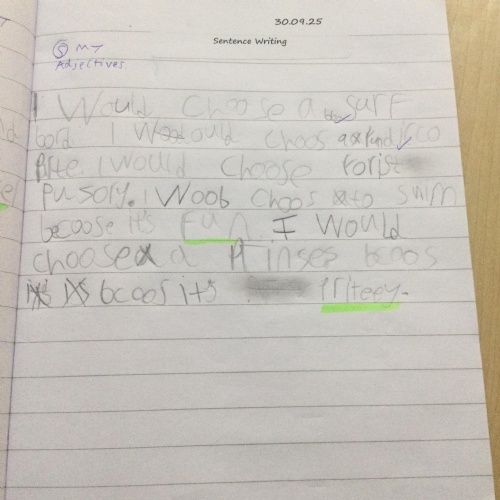 30.09.25
Sentence Writing
S My
Adjectives.
I Would choose a surf
bord I Would choos a
Brte. I would choose
pusory. I Woob choos to swim
becoose it's fun. I Would
choose a Prinses bcoos
bcoos it's priteey.